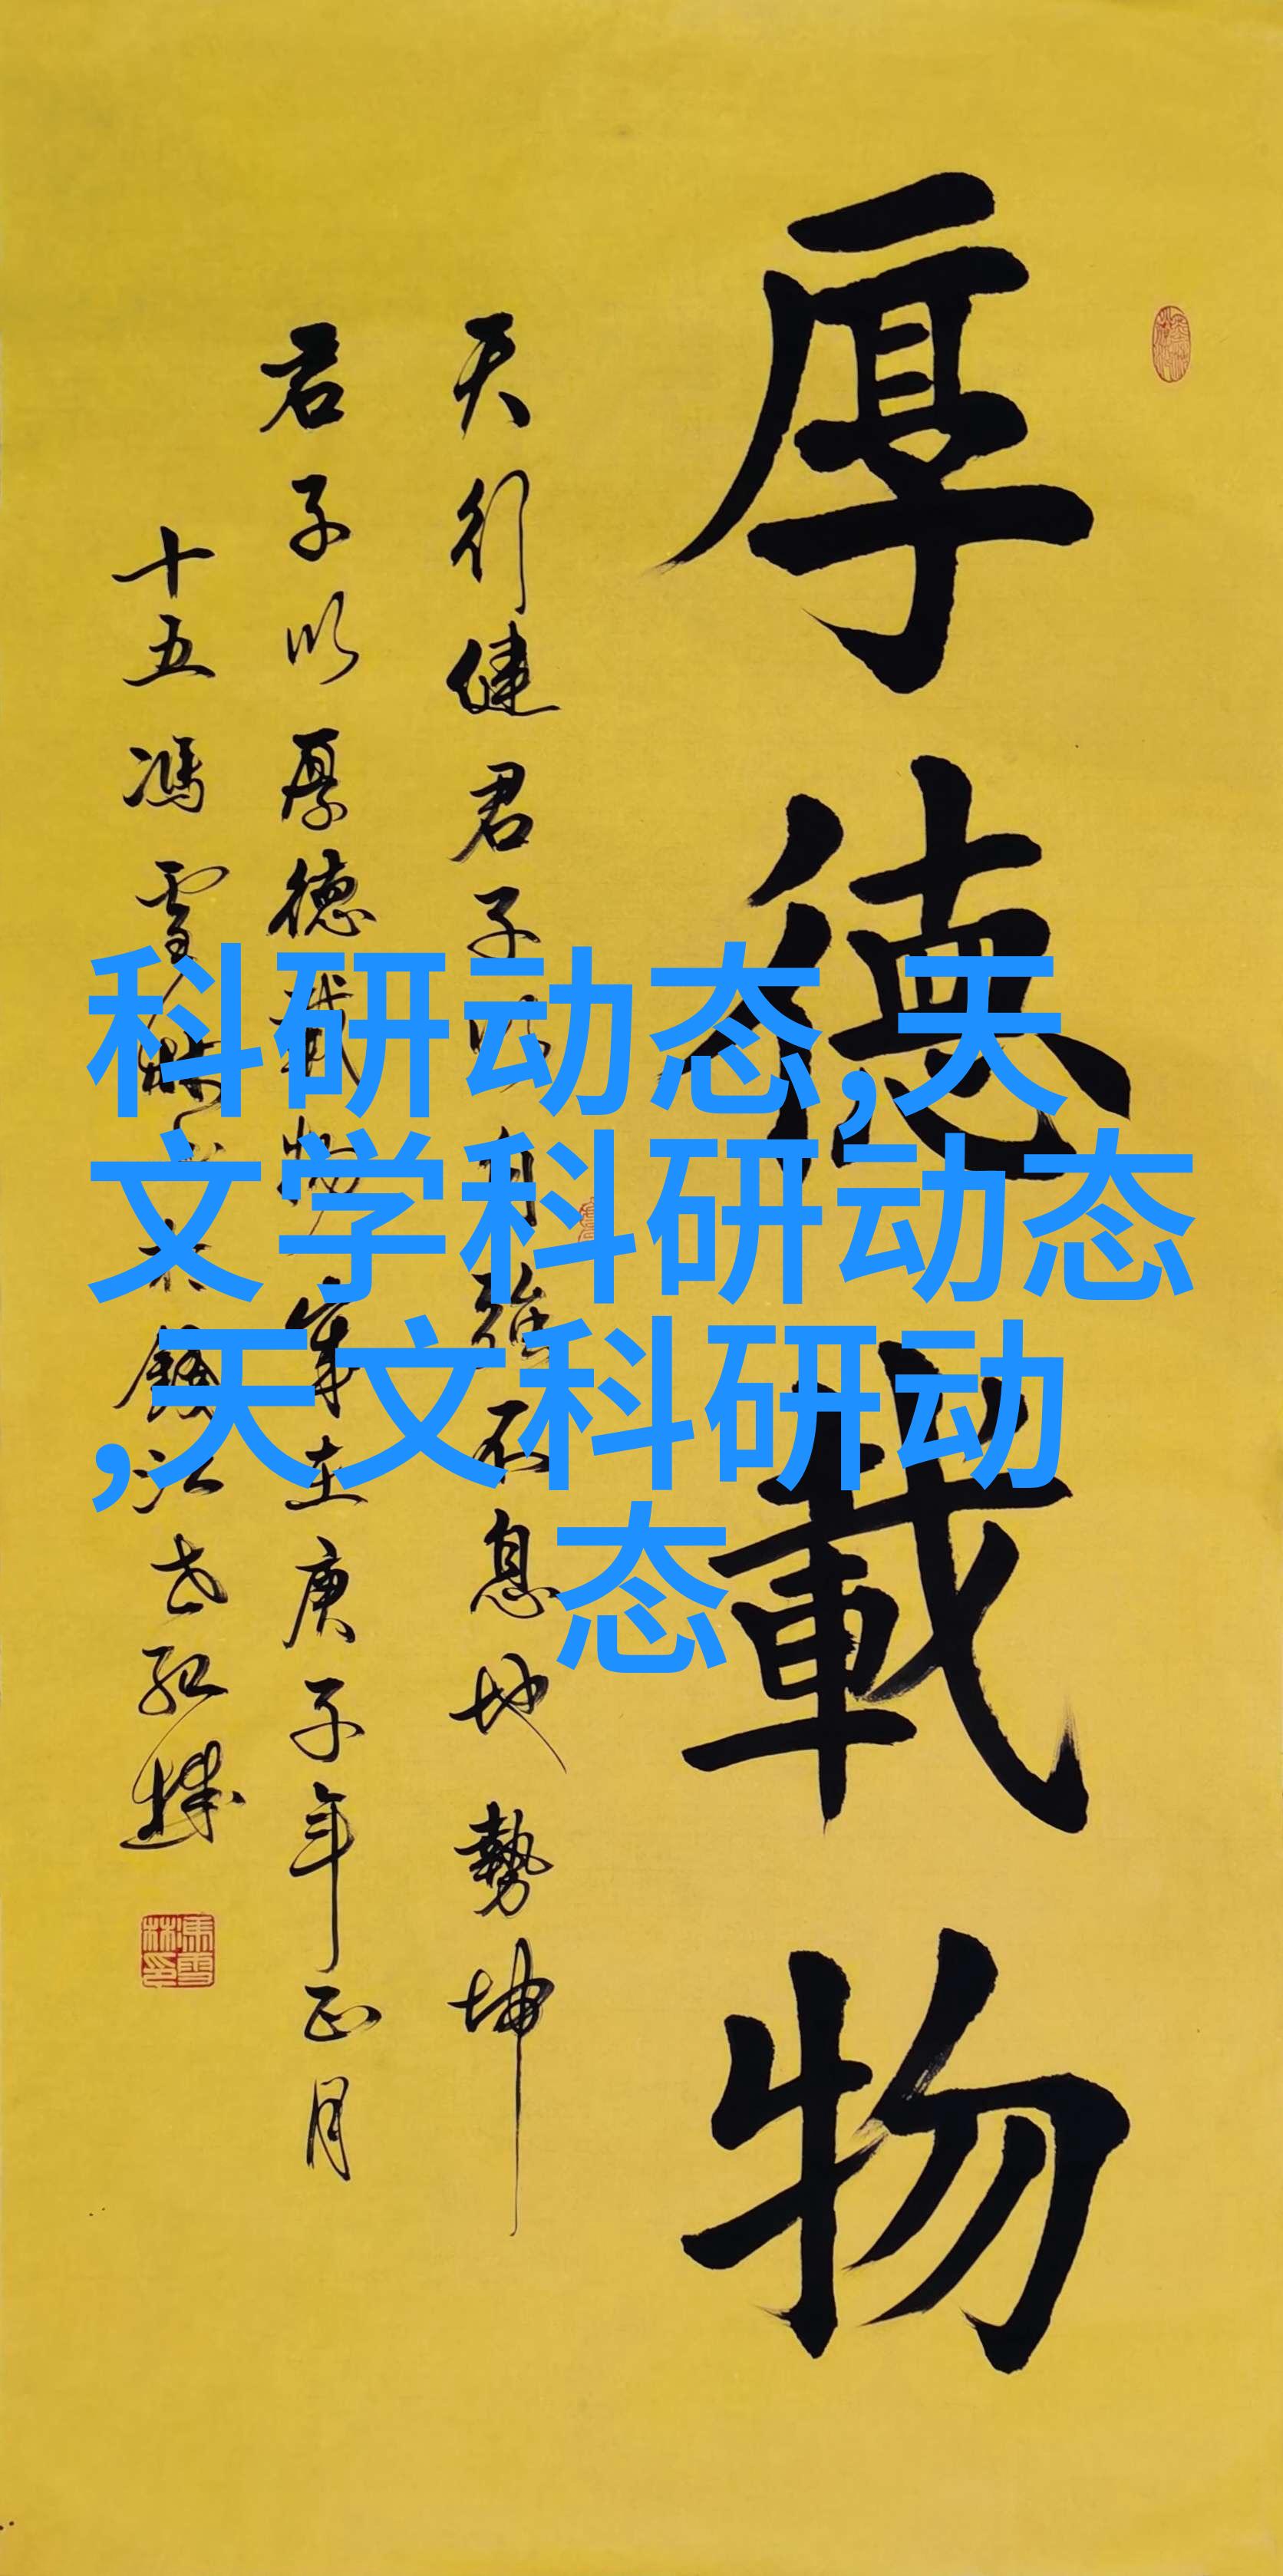 厚德載物
天行健君子以自強不息地勢坤
君子以厚德載物 歲在庚子年正月
十五馮雪林
科研动态,天
文学科研动态
,天文科研动
态
馮雪林印